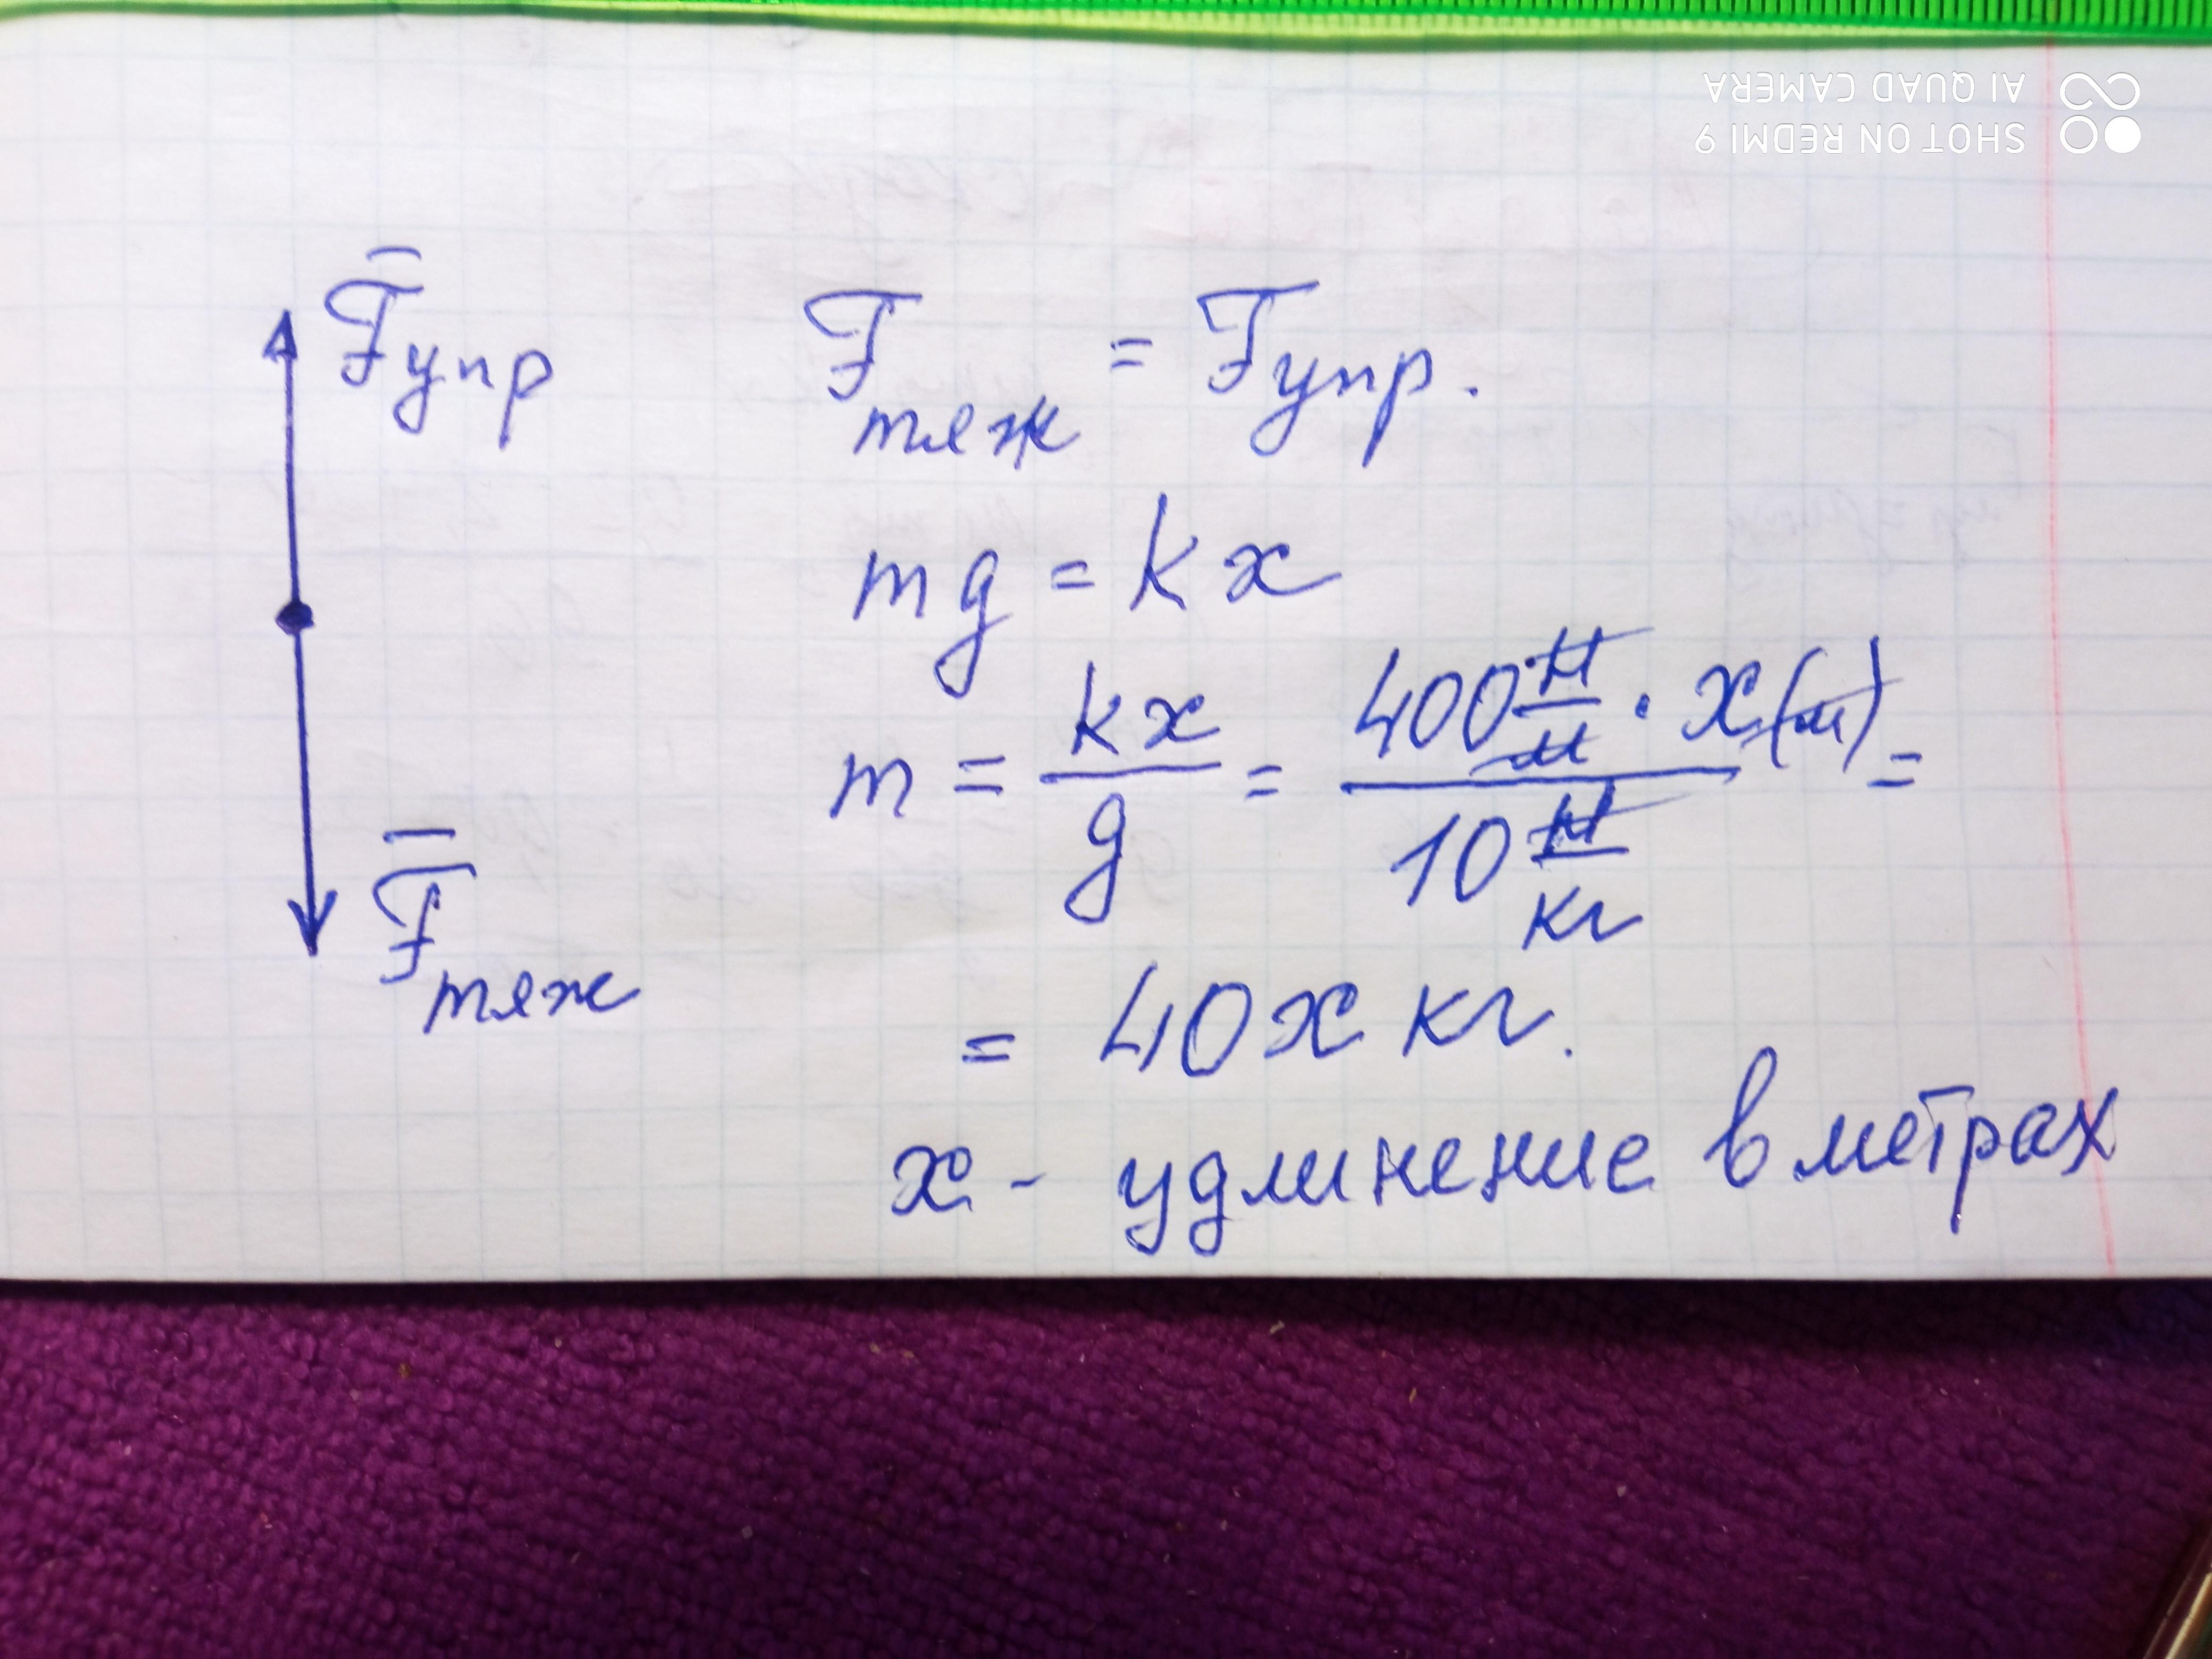 SHOT ON REDMI 9
AI QUAD CAMERA
F̄упр
F̄тяж
Fтяж = Fупр.
mg = kx
m = kx/g = 400 Н/м · x(м) / 10 Н/кг =
= 40x кг.
x - удлинение в метрах